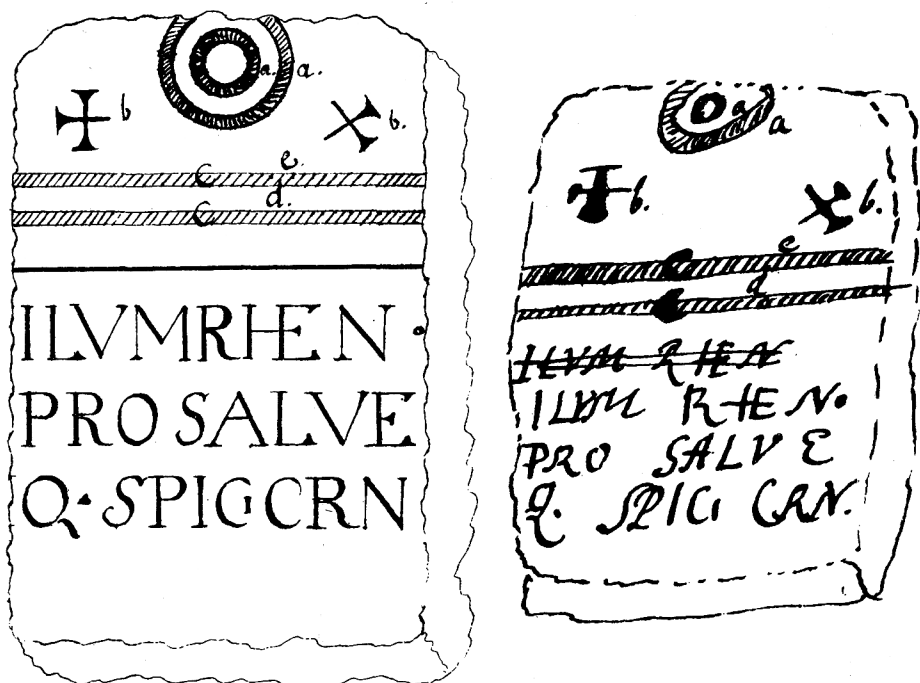 a. a.
b b.
c e.
d.
c
ILVMRHEN ·
PRO SALVE
Q· SPIGCRN
a a
b. b.
e
d
ILVM RHEN
ILVM RHEN·
PRO SALVE
Q. SPIG CRN.